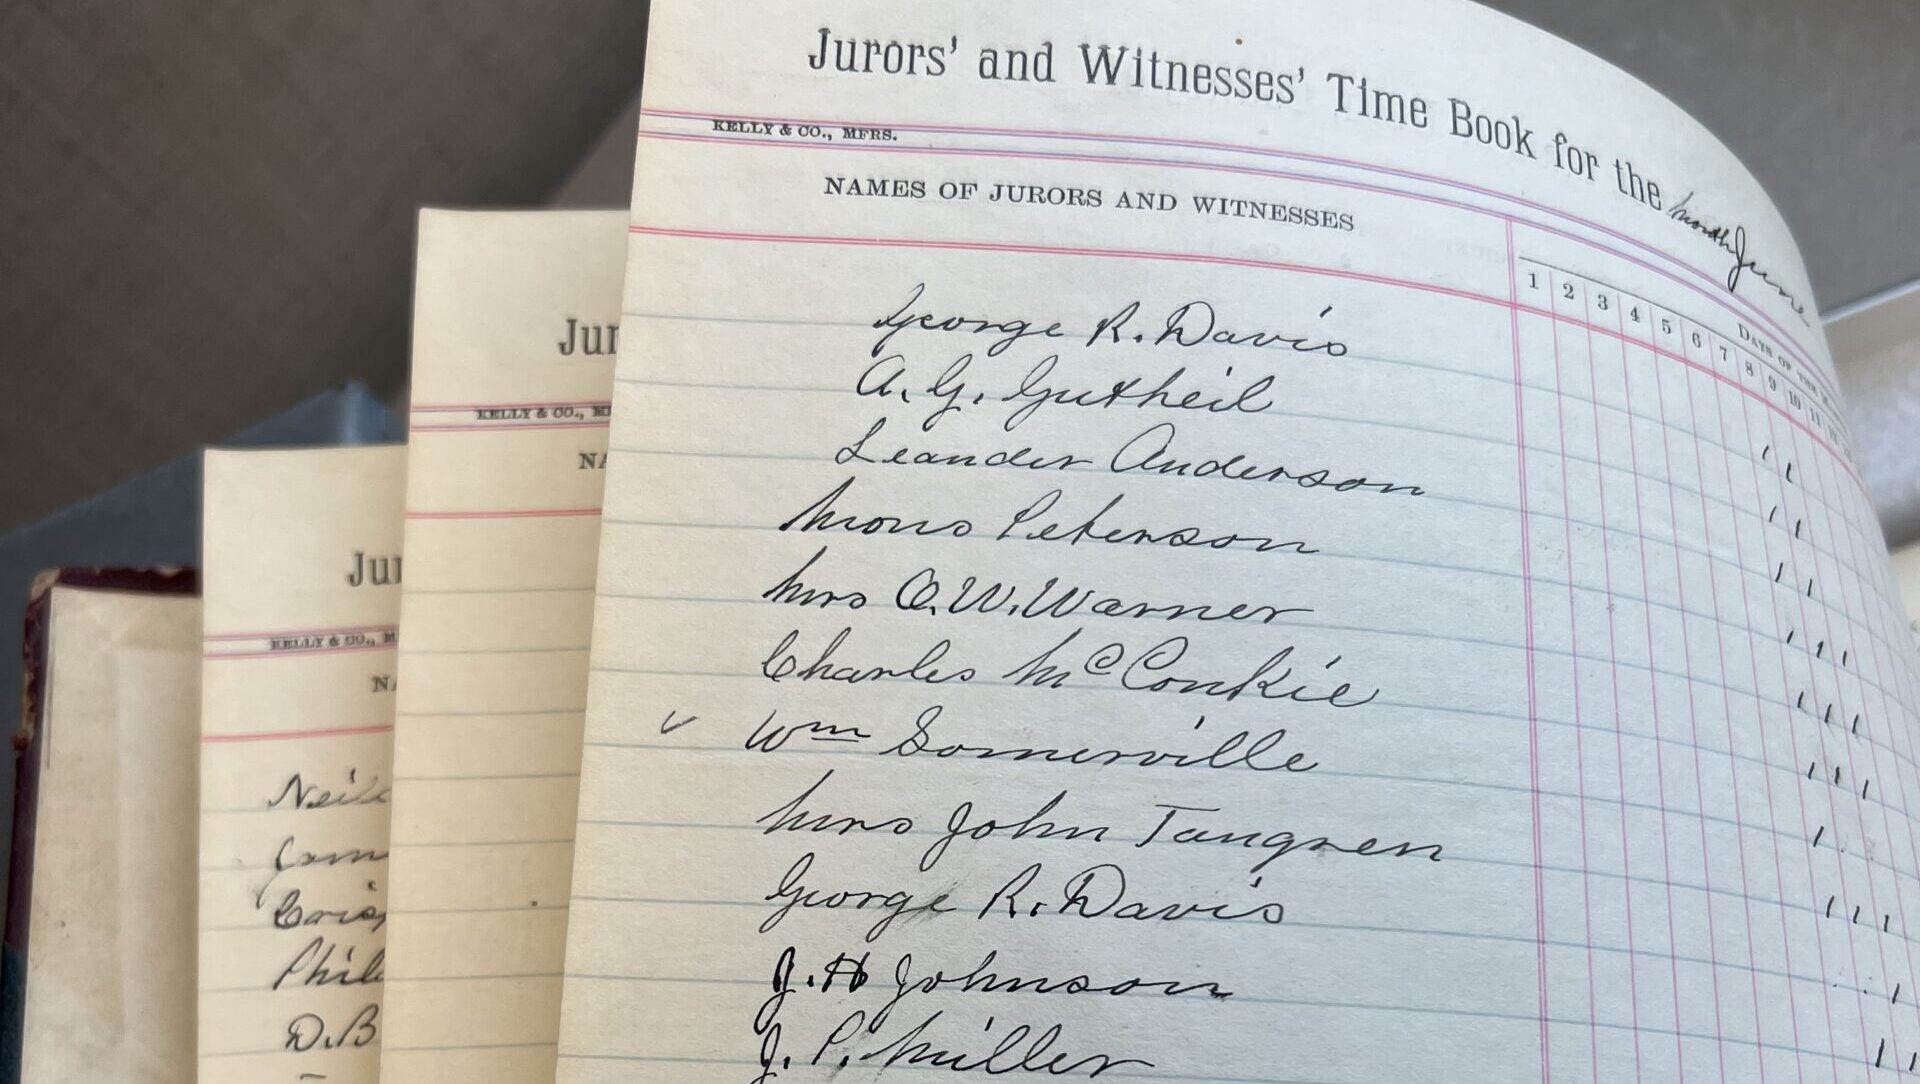 Jurors' and Witnesses' Time Book for the month June
KELLY & CO., MFRS.
NAMES OF JURORS AND WITNESSES
DAYS OF THE
1 2 3 4 5 6 7 8 9 10 11
George R. Davis
A. G. Gutheil
Leander Anderson
Mons Peterson
Mrs O. W. Warner
Charles McConkie
✓ Wm Somerville
Mrs John Tangren
George R. Davis
J. H Johnson
J. P. Miller
Jur
KELLY & CO.,
NA
Jur
KELLY & CO.,
NA
Neil
Phil
D. B